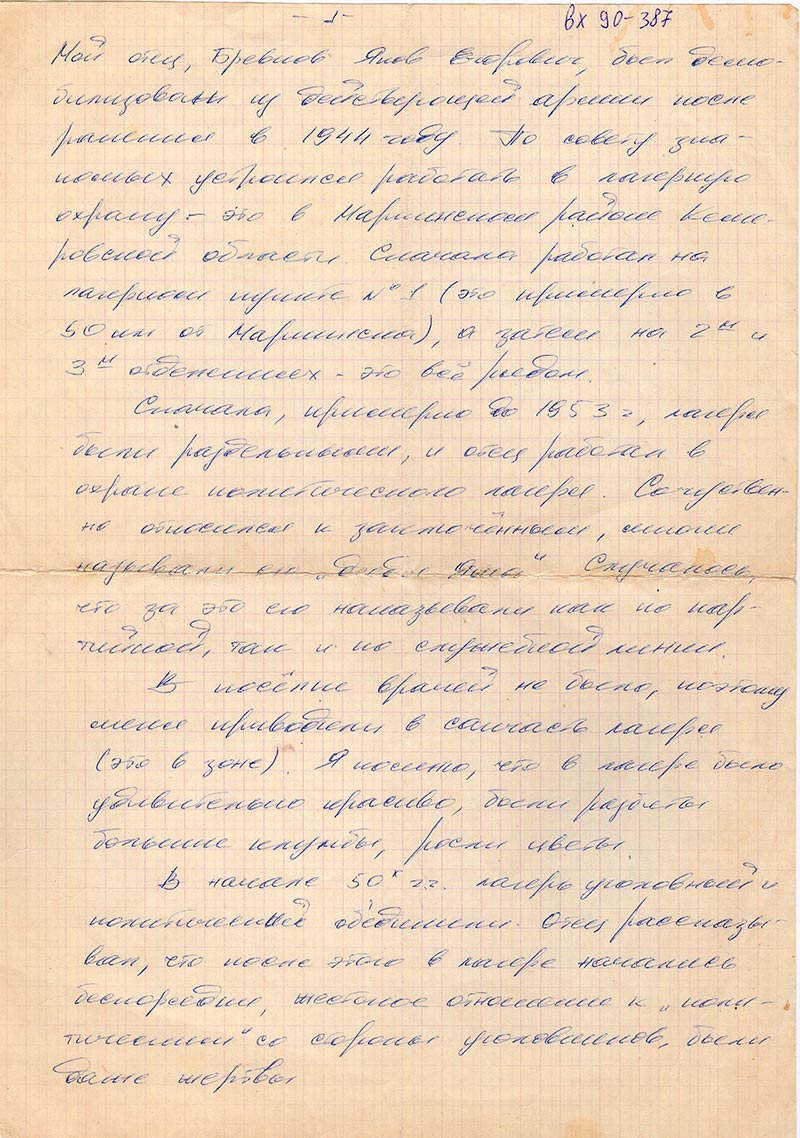 - 1 -
вх 90-387
Мой отец, Бревнов Яков Егорович, был демо-
билизован из действующей армии после
ранения в 1944 году. По совету зна-
комых устроился работать в лагерную
охрану - это в Мариинском районе Кеме-
ровской области. Сначала работал на
лагерном пункте № 1 (это примерно в
50 км от Мариинска), а затем на 2м и
3м отделениях - это всё рядом.
Сначала, примерно до 1953 г, лагеря
были раздельными, и отец работал в
охране политического лагеря. Сочувствен-
но относился к заключённым, многие
называли его „дядя Яша“ Случалось,
что за это его наказывали как по пар-
тийной, так и по служебной линии.
В посёлке врачей не было, поэтому
меня приводили в санчасть лагеря
(это в зоне). Я помню, что в лагере было
удивительно красиво, были разбиты
большие клумбы, росли цветы
В начале 50х гг. лагерь уголовный и
политический объединили. Отец рассказы-
вал, что после этого в лагере начались
беспорядки, жестокое отношение к „поли-
тическим“ со стороны уголовников, были
даже жертвы